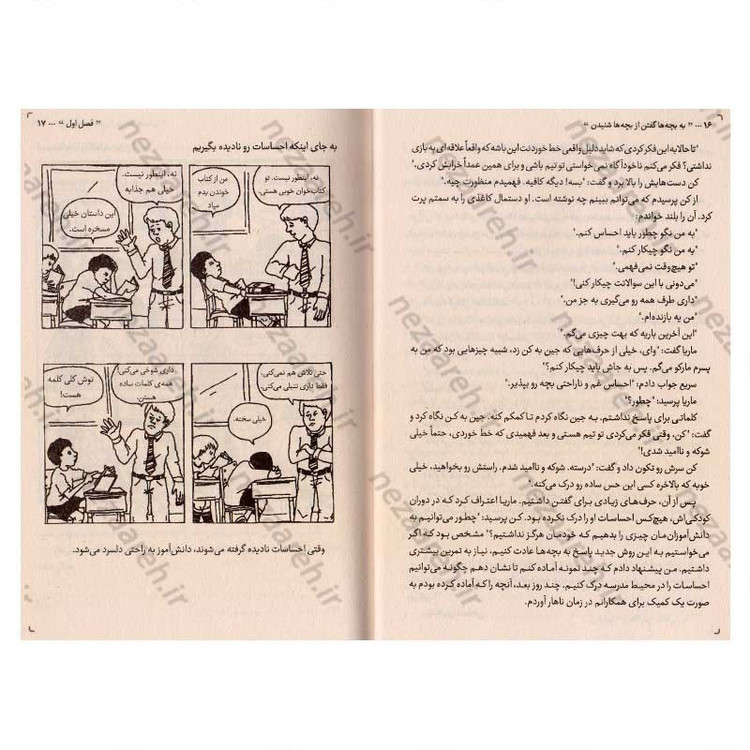 ۱۶ ... " به بچه‌ها گفتن از بچه‌ها شنیدن "
"تا حالا به این فکر کردی که شاید دلیل واقعی خط خوردنت این باشه که واقعاً علاقه‌ای به بازی
نداشتی؟ فکر می‌کنم ناخودآگاه نمی‌خواستی تو تیم باشی و برای همین عمداً خرابش کردی."
کن دست‌هایش را بالا برد و گفت: "بسه! دیگه کافیه. فهمیدم منظورت چیه."
از کن پرسیدم که می‌توانم ببینم چه نوشته است. او دستمال کاغذی را به سمتم پرت
کرد. آن را بلند خواندم:
"به من نگو چطور باید احساس کنم."
"به من نگو چیکار کنم."
"تو هیچ‌وقت نمی‌فهمی."
"می‌دونی با این سوالاتت چیکار کنی!"
"داری طرف همه رو می‌گیری به جز من."
"من یه بازنده‌ام."
"این آخرین باریه که بهت چیزی می‌گم."
ماریا گفت: "وای، خیلی از حرف‌هایی که جین به کن زد، شبیه چیزهایی بود که من به
پسرم مارکو می‌گم. پس به جاش باید چیکار کنم؟"
سریع جواب دادم: "احساس غم و ناراحتی بچه رو بپذیر."
ماریا پرسید: "چطور؟"
کلماتی برای پاسخ نداشتم. به جین نگاه کردم تا کمکم کنه. جین به کن نگاه کرد و
گفت: "کن، وقتی فکر می‌کردی تو تیم هستی و بعد فهمیدی که خط خوردی، حتماً خیلی
شوکه و ناامید شدی!"
کن سرش رو تکون داد و گفت: "درسته. شوکه و ناامید شدم. راستش رو بخواهید، خیلی
خوبه که بالاخره کسی این حس ساده رو درک می‌کنه."
پس از آن، حرف‌های زیادی برای گفتن داشتیم. ماریا اعتراف کرد که در دوران
کودکی‌اش، هیچ‌کس احساسات او را درک نکرده بود. کن پرسید: "چطور می‌توانیم به
دانش‌آموزان‌مان چیزی را بدهیم که خودمان هرگز نداشتیم؟" مشخص بود که اگر
می‌خواستیم به این روش جدید پاسخ به بچه‌ها عادت کنیم، نیاز به تمرین بیشتری
داشتیم. من پیشنهاد دادم که چند نمونه آماده کنم تا نشان دهم چگونه می‌توانیم
احساسات را در محیط مدرسه درک کنیم. چند روز بعد، آنچه را که آماده کرده بودم به
صورت یک کمیک برای همکارانم در زمان ناهار آوردم.
" فصل اول " ... ۱۷
به جای اینکه احساسات رو نادیده بگیریم
نه، اینطور نیست. تو
کتاب‌خوان خوبی هستی.
من از کتاب
خوندن بدم
میاد
نه، اینطور نیست.
خیلی هم جذابه
این داستان خیلی
مسخره است.
حتی تلاش هم نمی‌کنی.
فقط داری تنبلی می‌کنی.
خیلی سخته.
داری شوخی می‌کنی!
همه‌ی کلمات ساده
هستن.
توش کلی کلمه
هست!
وقتی احساسات نادیده گرفته می‌شوند، دانش‌آموز به راحتی دلسرد می‌شود.
nezaareh.ir